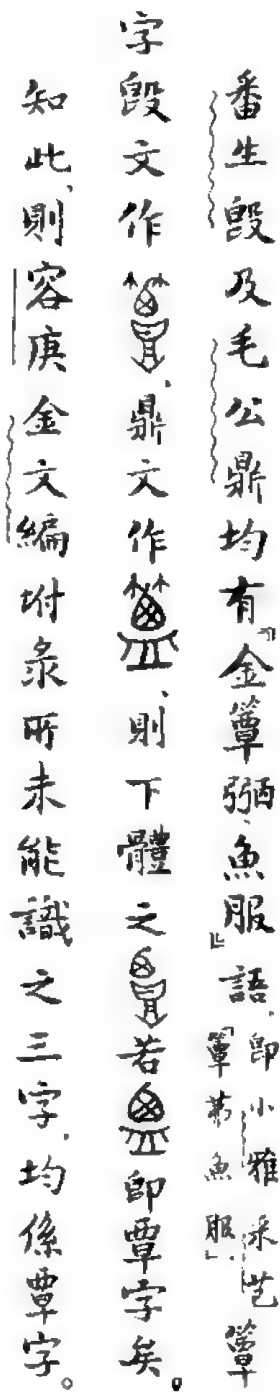 番生𣪘及毛公鼎均有『金簟弼、魚服』語,即小雅采芑「簟茀魚服」。簟
字𣪘文作、鼎文作、則下體之若即覃字矣。
知此、則容庚金文編坿彔所未能識之三字,均係覃字。